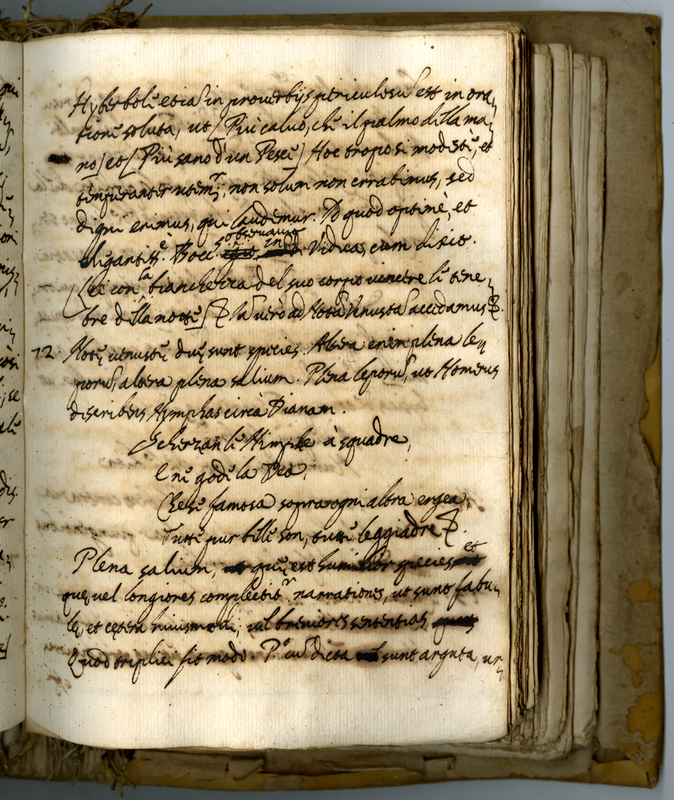 Hyperbole etiā in proverbijs periculosū est in ora,,
tione soluta, ut [Più calvo, che il palmo della ma,,
no] et [Più sano d'un Pesce] Hoc tropo si modestè, et
temperanter utemʳ, non solum non errabimus, sed
digni erimus, qui laudemur. Id quod optimè, et
observavit
eligantissᵉ. Hoc in Vidica, cum dixit.
la
[Lei con bianchezza del suo corpo vincere le tene,,
bre della notte] Iā verò ad Notā Venustā accedamus.
72. Notę venustę duę sunt species. Altera enim plena le,,
porū, altera plena salium. Plena leporū, ut Homerus
discribens Nymphas circà Dianam.
Scherzan le Nimfe à squadre,
E ne gode la Dea,
Che se famosa sopra ogni altra ergea
Tutte pur belle son, tutte leggiadre.
et
Plena salium, quę est humilior species,
quę vel longiores complectitʳ narrationes, ut sunt fabu,,
lę, et cętera huiusmodi; vel breviores sententias,
Quod triplici fit modo. Pᵒ cū dicta sunt arguta, ur,,